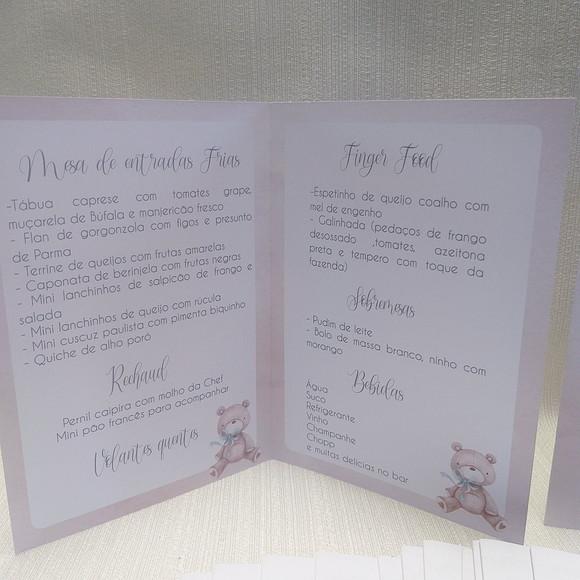 Mesa de entradas Frias
-Tábua caprese com tomates grape,
muçarela de Búfala e manjericão fresco
- Flan de gorgonzola com figos e presunto
de Parma
- Terrine de queijos com frutas amarelas
- Caponata de berinjela com frutas negras
- Mini lanchinhos de salpicão de frango e
salada
- Mini lanchinhos de queijo com rúcula
- Mini cuscuz paulista com pimenta biquinho
- Quiche de alho poró
Rechaud
Pernil caipira com molho da Chef
Mini pão francês para acompanhar
Volantes quentes
Finger Food
-Espetinho de queijo coalho com
mel de engenho
- Galinhada (pedaços de frango
desossado ,tomates, azeitona
preta e tempero com toque da
fazenda)
Sobremesas
- Pudim de leite
- Bolo de massa branco, ninho com
morango
Bebidas
Água
Suco
Refrigerante
Vinho
Champanhe
Chopp
e muitas delícias no bar